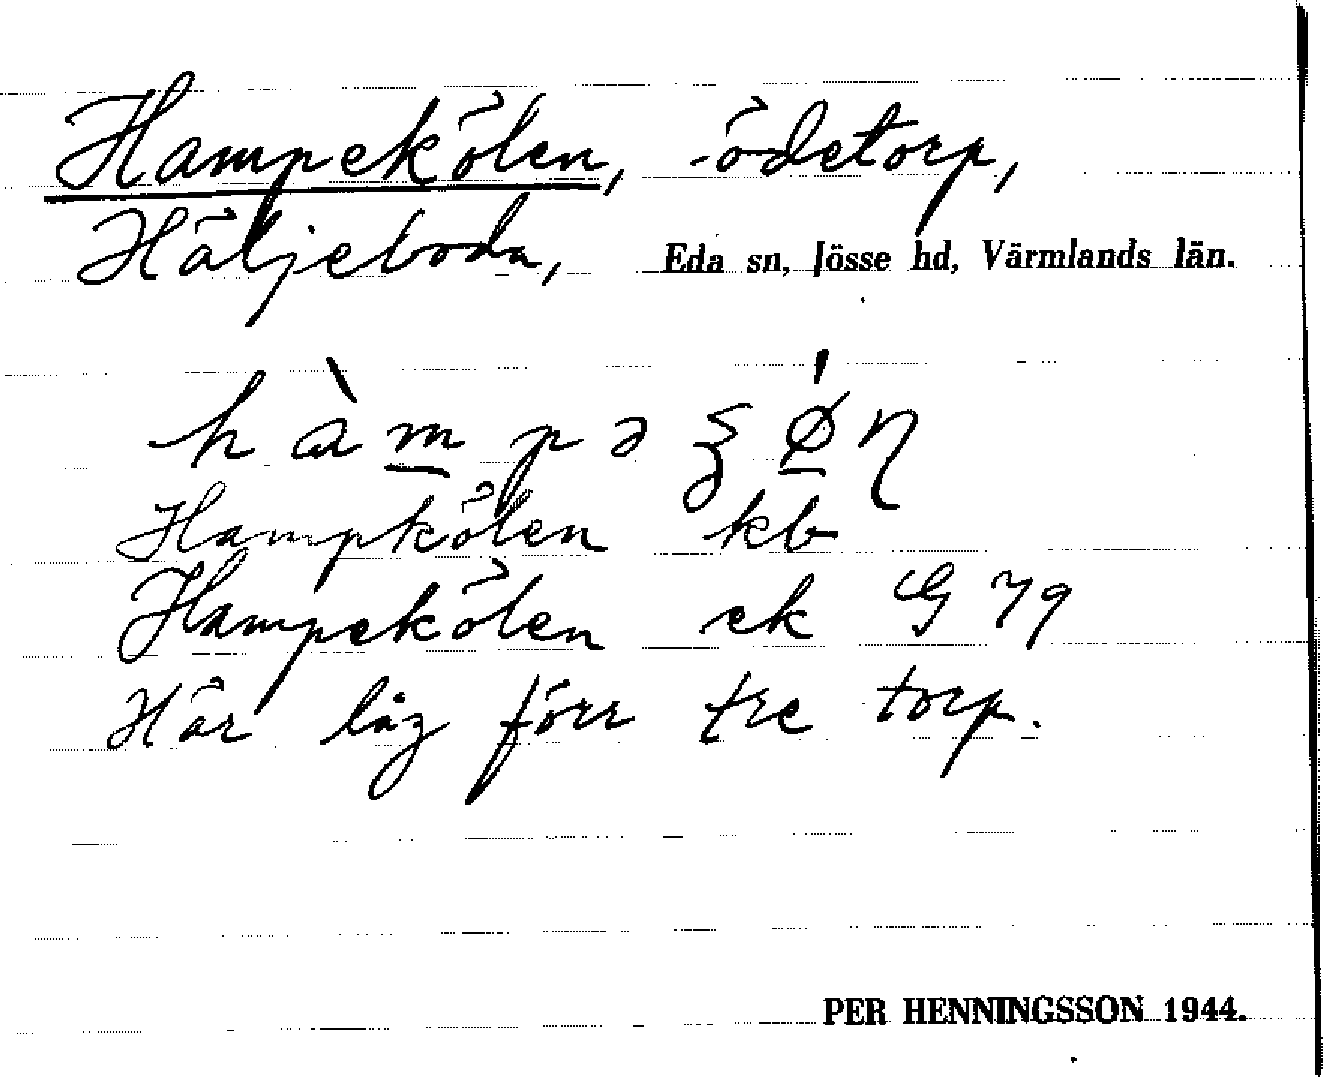 Hampekölen, ödetorp,
Häljeboda, Eda sn, Jösse hd, Värmlands län.
hàm̲pəξǿ̲η
Hampkölen kb
Hampekölen ek G 79
Här låg förr tre torp.
PER HENNINGSSON 1944.